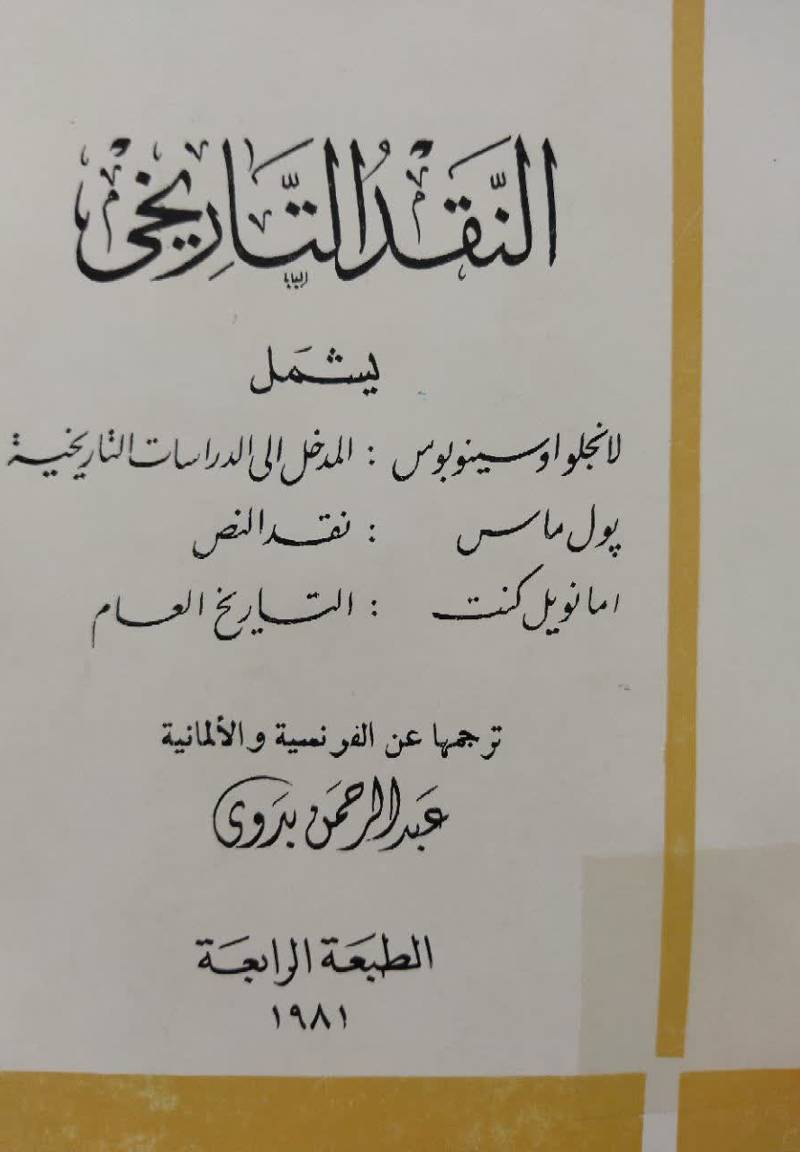 النَّقدُ التَّاريخى
يشمَل
لانجلوا وسينوبوس : المدخل الى الدراسات التاريخية
پول ماس : نقد النص
امانويل كنت : التاريخ العام
ترجمها عن الفرنسية والألمانية
عَبدالرحمن بدَوى
الطبعَة الرابعَة
١٩٨١